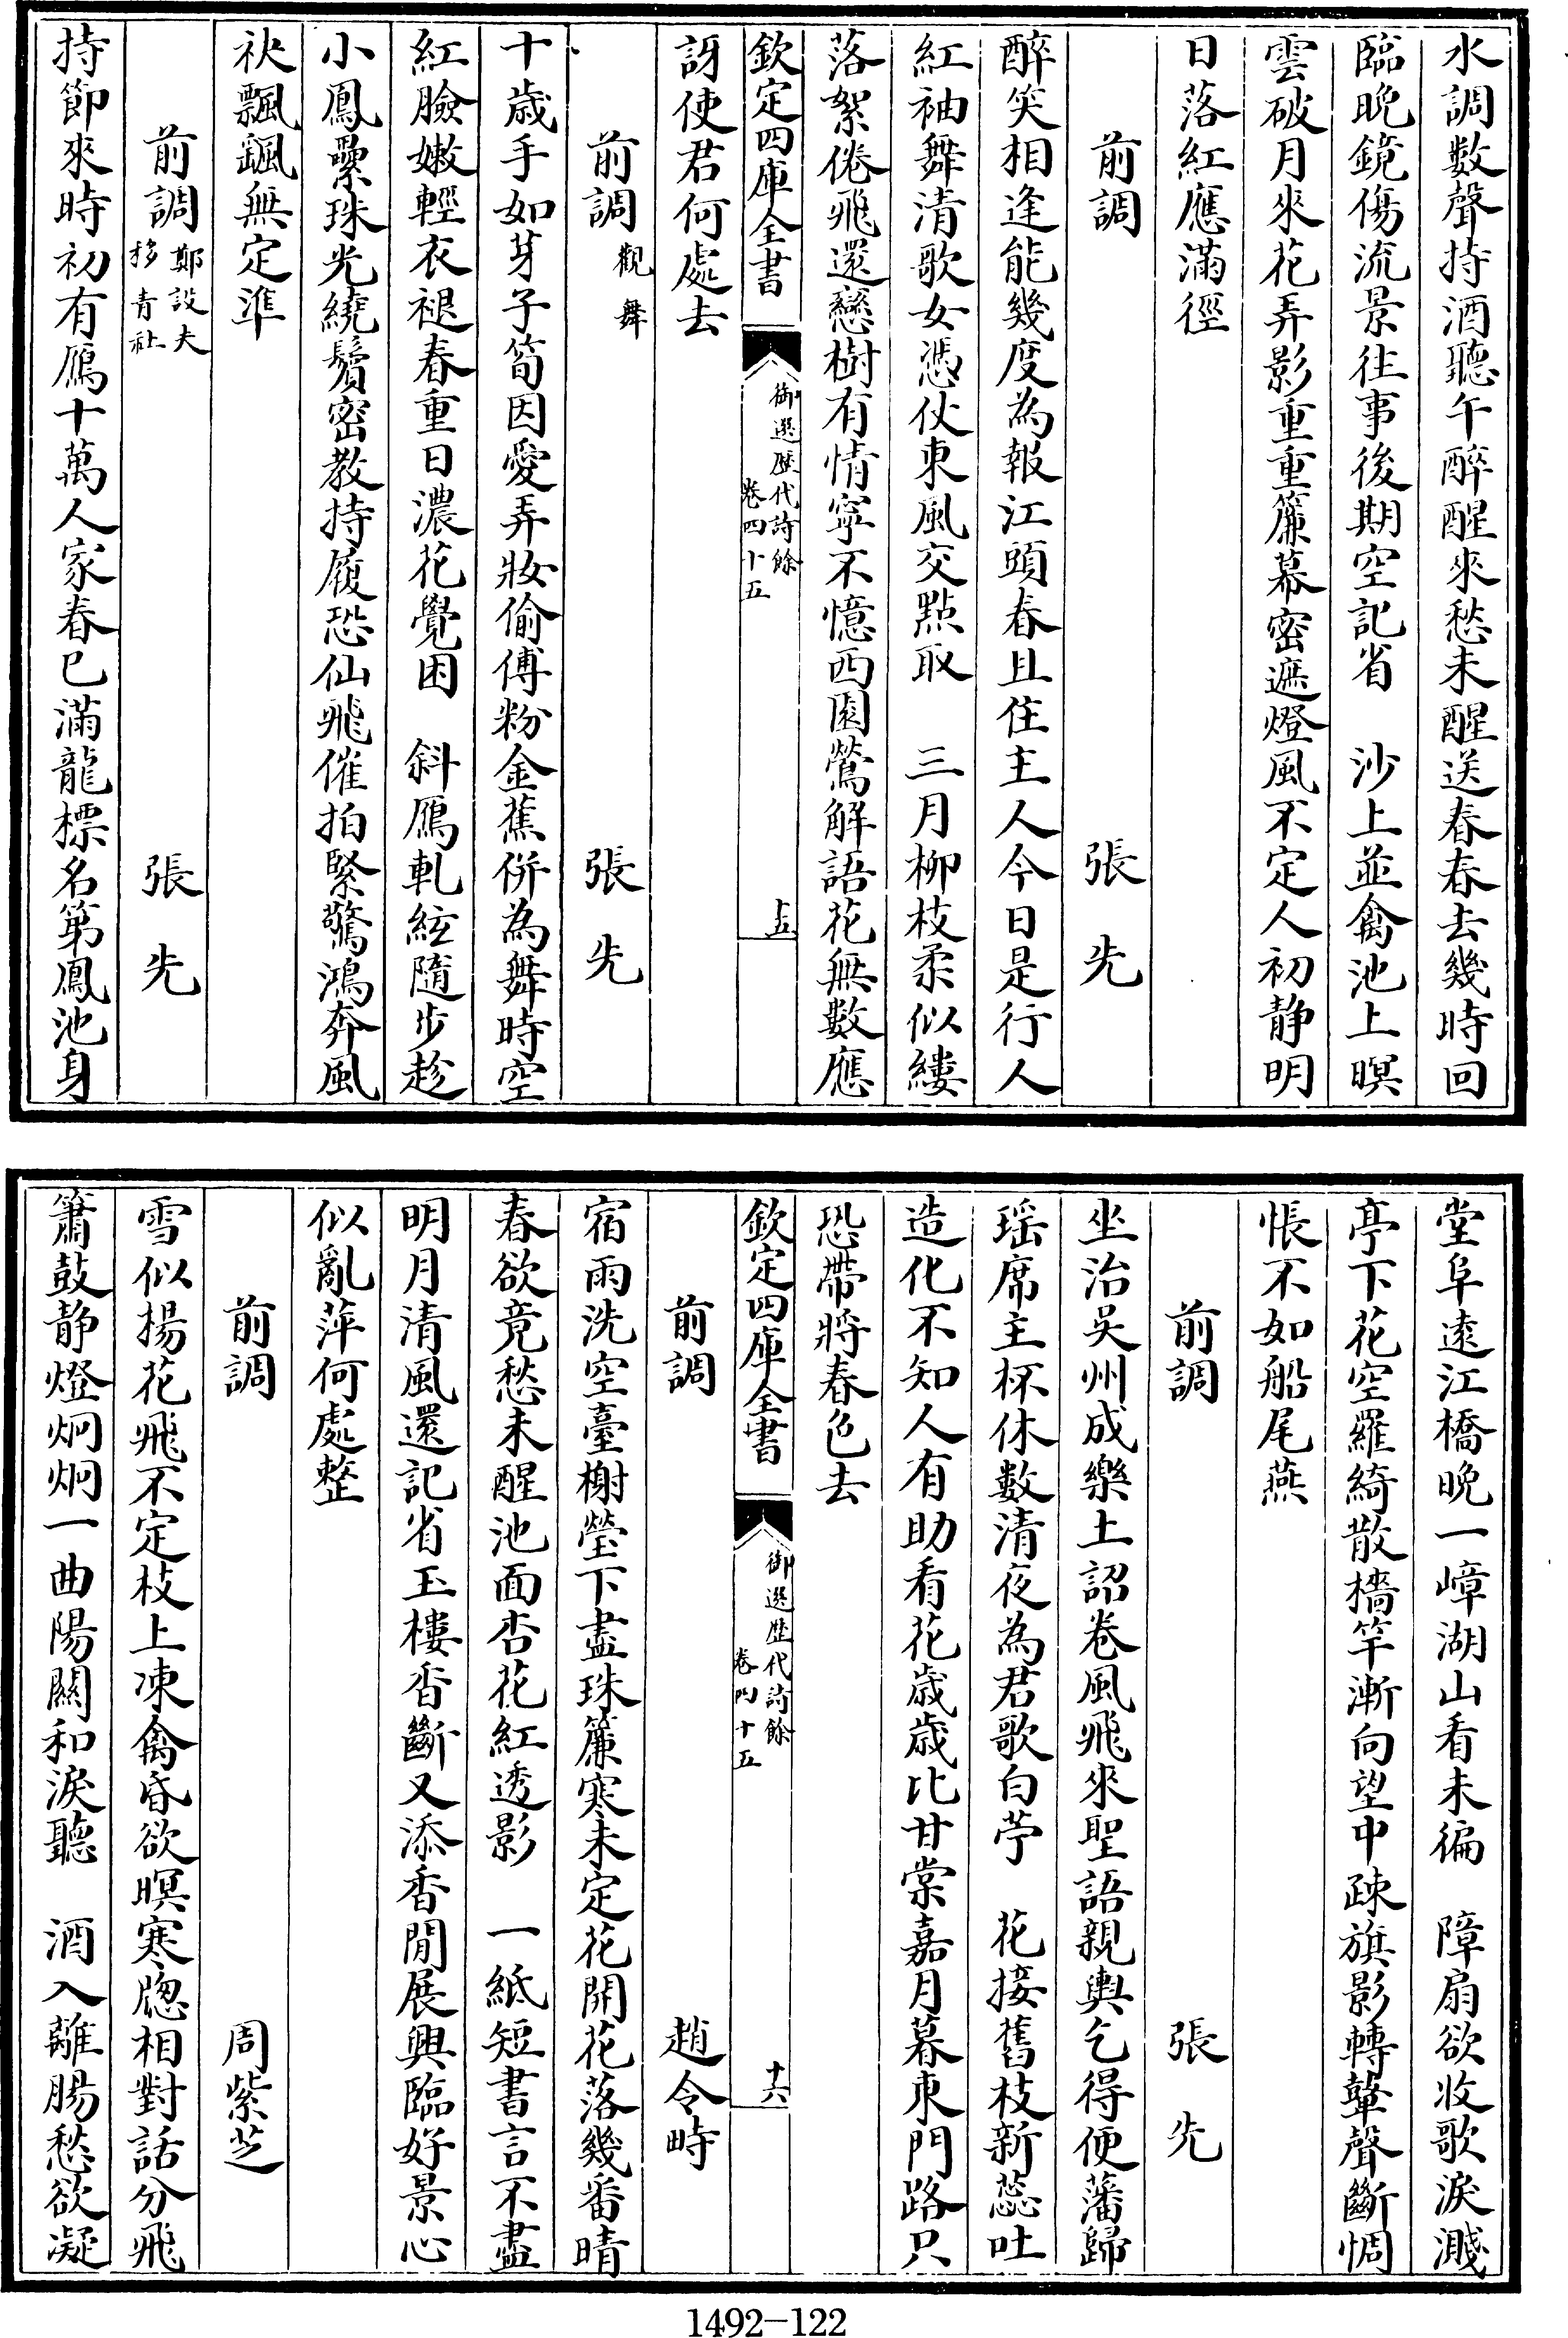 水調數聲持酒聽午醉醒來愁未醒送春春去幾時回
臨晚鏡傷流景往事後期空記省　沙上並禽池上暝
雲破月來花弄影重重簾幕密遮燈風不定人初静明
日落紅應滿徑
前調　張先
醉笑相逢能幾度為報江頭春且住主人今日是行人
紅袖舞清歌女憑仗東風交點取　三月柳枝柔似縷
落絮倦飛還戀樹有情寧不憶西園鶯解語花無數應
欽定四庫全書　御選歷代詩餘　卷四十五　十五
訝使君何處去
前調觀舞　張先
十歲手如芽子筍因愛弄妝偷傅粉金蕉併為舞時空
紅臉嫩輕衣褪春重日濃花覺困　斜鴈軋絃隨步趁
小鳳纍珠光繞鬢密教持履恐仙飛催拍緊驚鴻奔風
袂飄颻無定準
前調鄭設夫移青社　張先
持節來時初有鴈十萬人家春已滿龍標名第鳳池身
堂阜遠江橋晚一嶂湖山看未徧　障扇欲收歌淚濺
亭下花空羅綺散檣竿漸向望中疎旗影轉鼙聲斷惆
悵不如船尾燕
前調　張先
坐治吳州成樂土詔卷風飛來聖語親輿乞得便藩歸
瑶席主杯休數清夜為君歌白苧　花接舊枝新蕊吐
造化不知人有助看花歲歲比甘棠嘉月暮東門路只
恐帶將春色去
欽定四庫全書　御選歷代詩餘　卷四十五　十六
前調　趙令畤
宿雨洗空臺榭瑩下盡珠簾寒未定花開花落幾番晴
春欲竟愁未醒池面杏花紅透影　一紙短書言不盡
明月清風還記省玉樓香斷又添香閒展興臨好景心
似亂萍何處整
前調　周紫芝
雪似揚花飛不定枝上凍禽昏欲暝寒牕相對話分飛
簫鼓静燈炯炯一曲陽關和淚聽　酒入離腸愁欲凝
1492-122